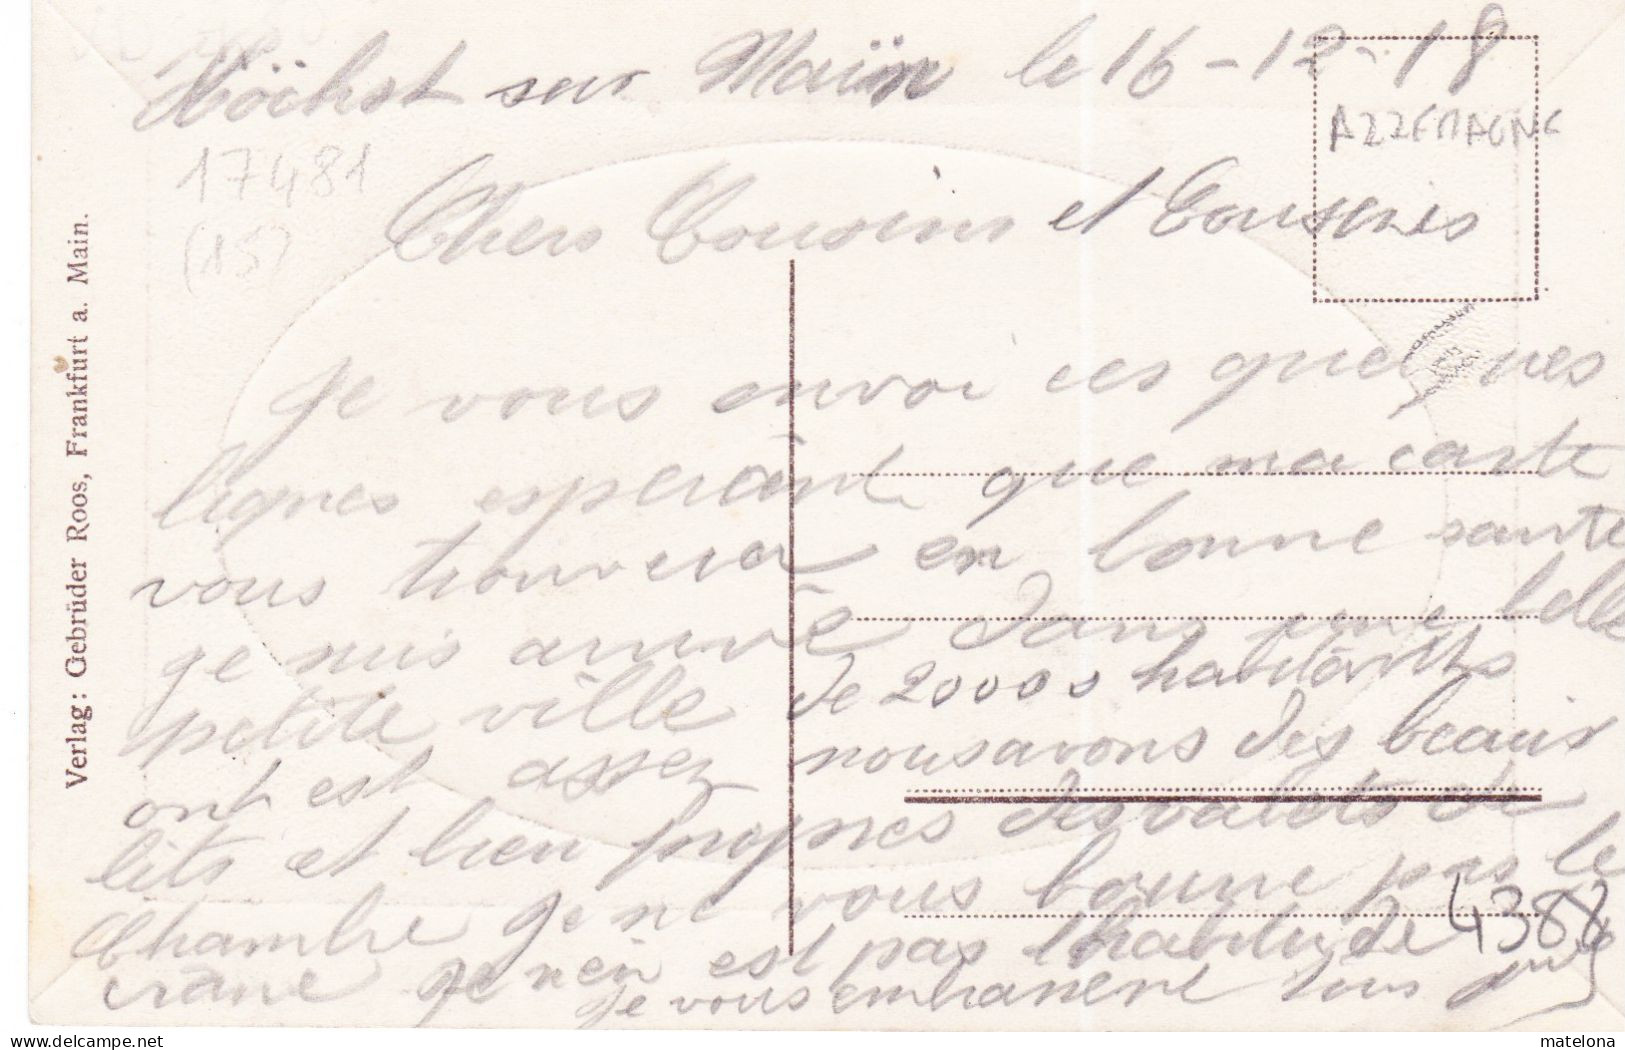 Höchst sur Maïn le 16-12-18
AZZEMAGNE
17481
(15)
Chers Cousins et Cousines
Je vous envoi ces quelques
lignes esperànt que ma carte
vous trouvera en bonne sante
je suis arrivé dans une belle
petite ville de 20000 habitànts
ont est assez nousavons des beaux
lits et bien propres des valets de
Chambre Je ne vous bourre pas le
crâne Je n'en est pas l'habitude
Je vous embrassent tous
4388
Verlag: Gebrüder Roos, Frankfurt a. Main.
matelona